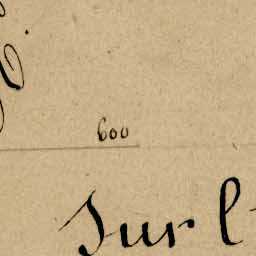 600
Sur l